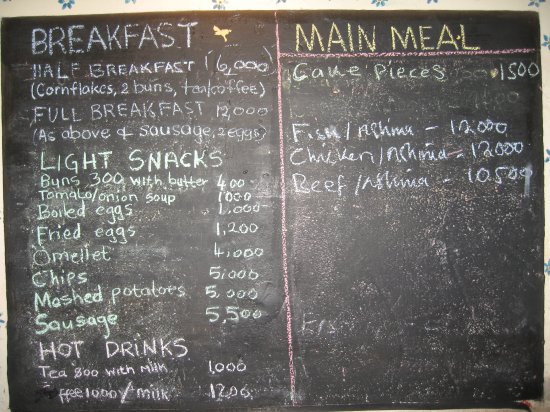 BREAKFAST
HALF BREAKFAST (6,000)
(Cornflakes, 2 buns, tea/coffee)
FULL BREAKFAST 12,000
(As above & sausage, 2 eggs)
LIGHT SNACKS
Buns 300 with butter 400
Tomato/onion soup 1000
Boiled eggs 1,000
Fried eggs 1,200
Omellet 4,000
Chips 5,000
Mashed potatoes 5,000
Sausage 5,500
HOT DRINKS
Tea 800 with Milk 1,000
ffee 1000/milk 1200
MAIN MEAL
Cake pieces 1500
Fish/Nshima - 12,000
Chicken/Nshima - 12000
Beef/Nshima - 10,500